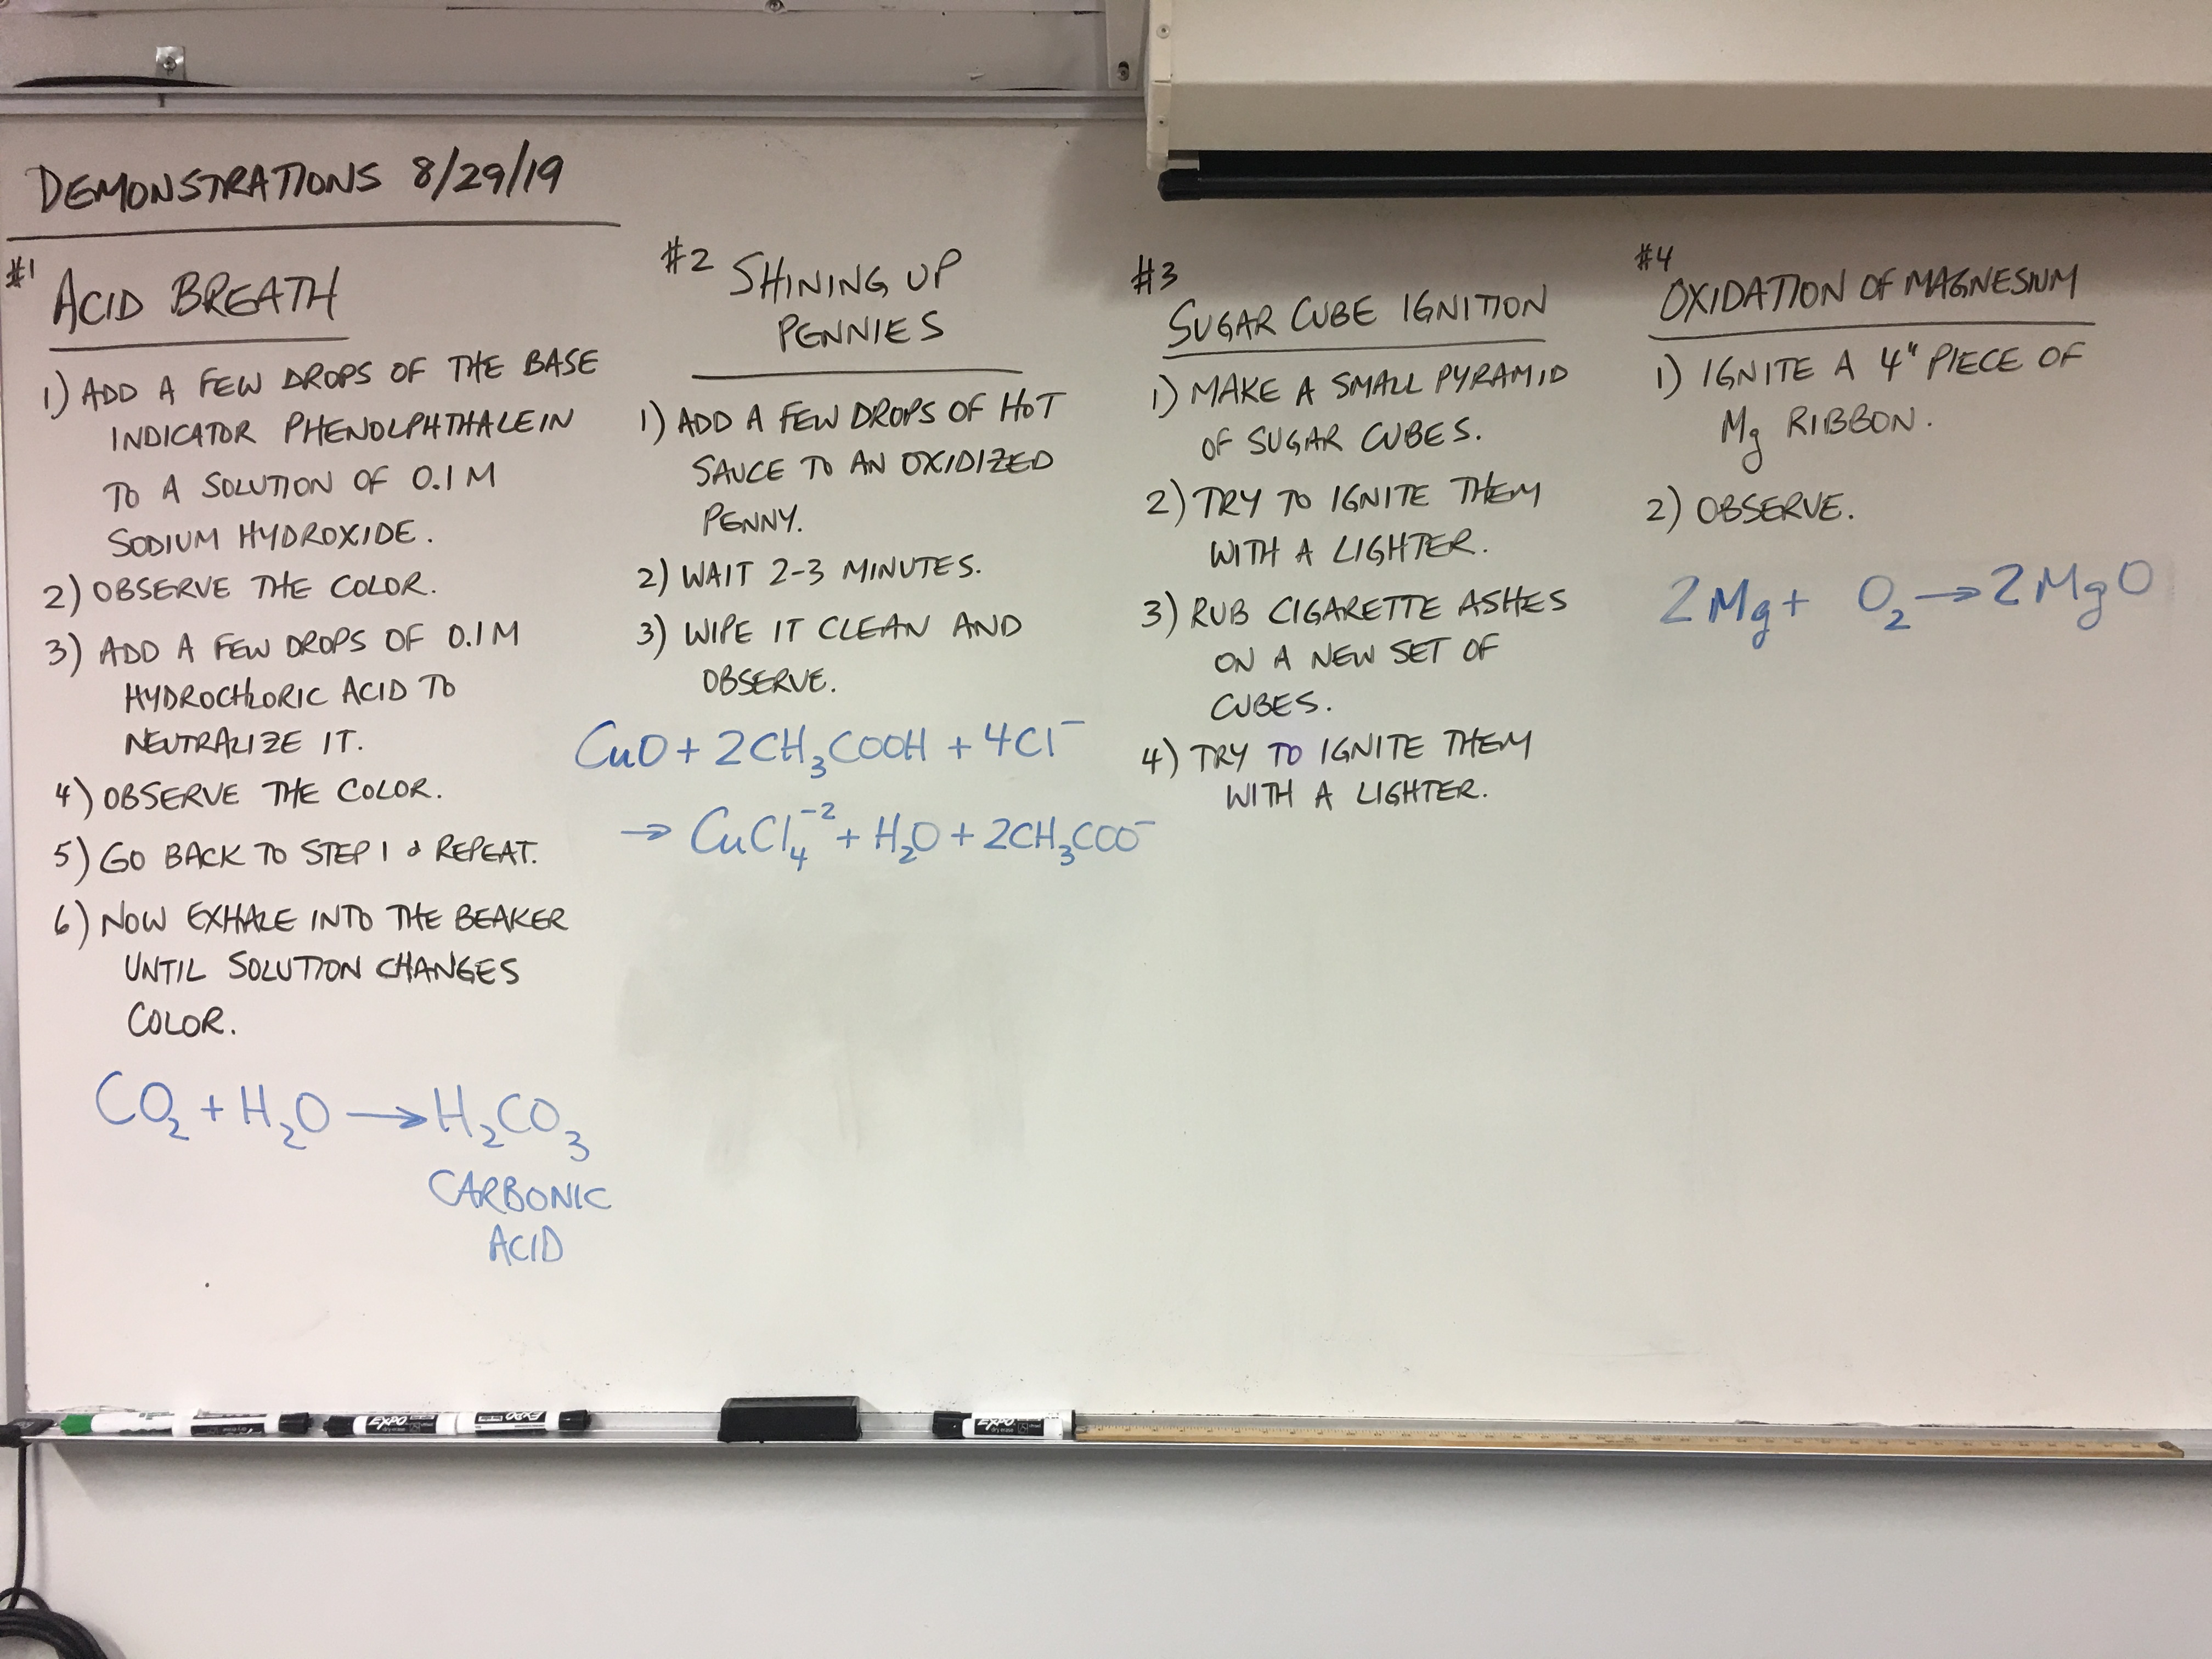 DEMONSTRATIONS 8/29/19
#1
ACID BREATH
1) ADD A FEW DROPS OF THE BASE
INDICATOR PHENOLPHTHALEIN
TO A SOLUTION OF 0.1 M
SODIUM HYDROXIDE.
2) OBSERVE THE COLOR.
3) ADD A FEW DROPS OF 0.1 M
HYDROCHLORIC ACID TO
NEUTRALIZE IT.
4) OBSERVE THE COLOR.
5) GO BACK TO STEP 1 & REPEAT.
6) NOW EXHALE INTO THE BEAKER
UNTIL SOLUTION CHANGES
COLOR.
CO₂ + H₂O → H₂CO₃
CARBONIC
ACID
#2 SHINING UP
PENNIES
1) ADD A FEW DROPS OF HOT
SAUCE TO AN OXIDIZED
PENNY.
2) WAIT 2-3 MINUTES.
3) WIPE IT CLEAN AND
OBSERVE.
CuO + 2CH₃COOH + 4Cl⁻
→ CuCl₄⁻² + H₂O + 2CH₃COO⁻
#3
SUGAR CUBE IGNITION
1) MAKE A SMALL PYRAMID
OF SUGAR CUBES.
2) TRY TO IGNITE THEM
WITH A LIGHTER.
3) RUB CIGARETTE ASHES
ON A NEW SET OF
CUBES.
4) TRY TO IGNITE THEM
WITH A LIGHTER.
#4
OXIDATION OF MAGNESIUM
1) IGNITE A 4" PIECE OF
Mg RIBBON.
2) OBSERVE.
2Mg + O₂ → 2MgO
EXPO
EXPO
EXPO